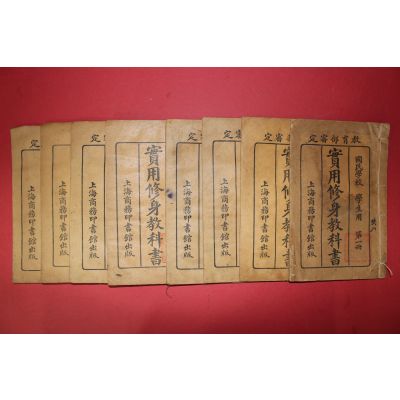 教育部審定
國民學校 學生用 第一冊
實用修身教科書
上海商務印書館出版
共八
部審定
實用修身教科書
上海商務印書館出版
審定
上海商務印書館出版
定
上海商務印書館出版
實用修身教科書
上海商務印書館出版
審定
上海商務印書館出版
定
上海商務印書館出版
定
上海商務印書館出版